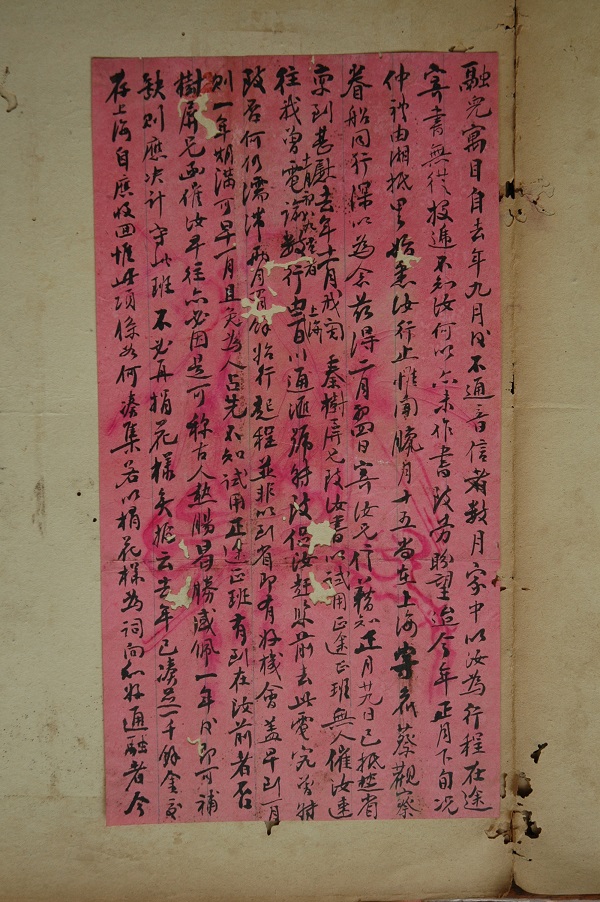 融兒寓目自去年九月後不通音信者數月家中以汝為行程在途
寄書無從投遞不知汝何以亦未作書致勞盼望迨今年正月下旬況
仲神由湘抵里始悉汝行止惟聞臘月十五尚在上海寄蔡觀察
眷船同行深以為念茲得二月初四日寄汝兄信藉知正月廿九日已抵省
京到甚慰去年十月我寄秦樹屏兄致汝書以試用正途正班無人催汝速
往我曾電諭數行由百川通匯號轉致促汝趕緊前去此電究曾轉 上海
致否何仍濡滯兩月有餘始行起程並非以到省即有好機會蓋早到一月
則一年期滿可早一月且免為人占先不知試用正途正班有到在汝前者否
樹屏兄函催汝早往亦必因是可稱古人熱腸曷勝感佩一年後即可補
缺則應決計守此班不必再捐花樣矣據云去年已湊足一千餘金交
存上海自應收回惟此項係如何湊集若以捐花樣為詞向知好通融者今